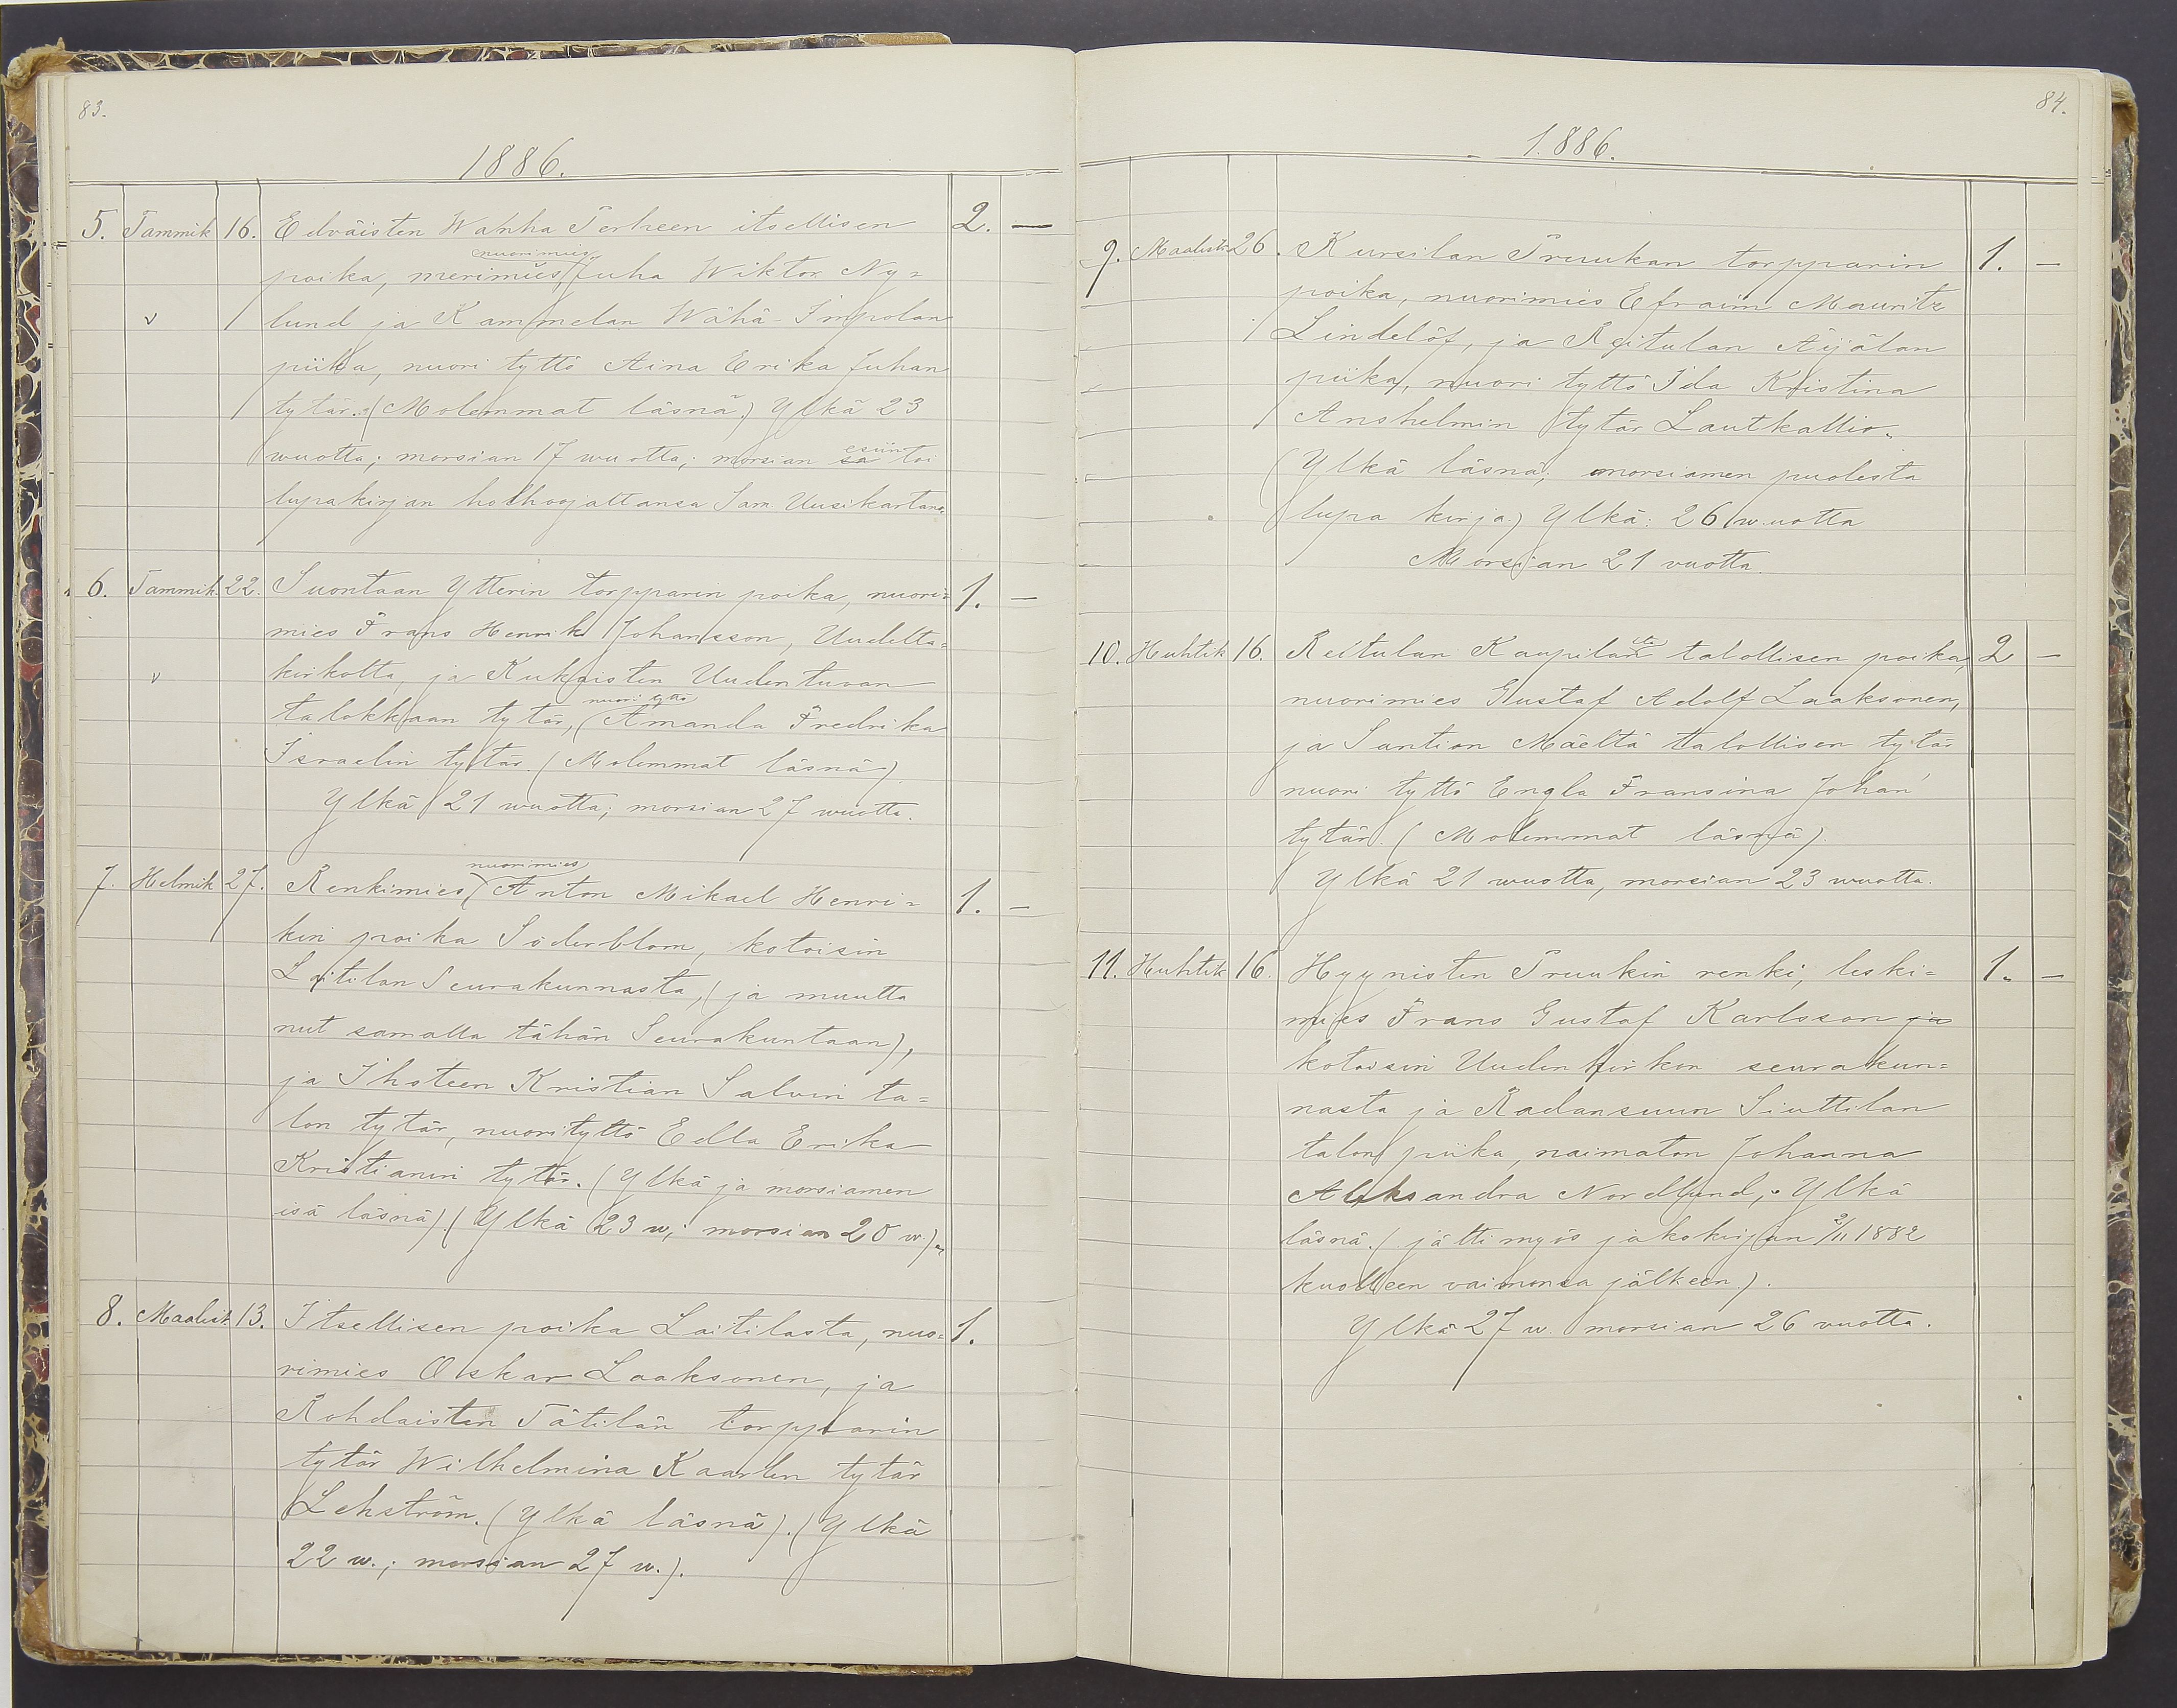 83.
1886.
5. Tammik 16. Edväisten Wanha Perheen itsellisen 2. —
nuorimies
poika, merimies, Juha Wiktor Ny=
v lund ja Kammelan Wähä-Simpolan
piika, nuori tyttö Aina Erika Juhan
tytär. (Molemmat läsnä) Ylkä 23
wuotta; morsian 17 wuotta; morsian sa esiin toi
lupakirjan holhoojaltansa Sam. Uusikartano.
6. Tammik. 22. Suontaan Ytterin torpparin poika, nuori= 1. —
mies Frans Henrik Johansson, Uudelta=
v kirkolta, ja Kukaisten Uudentuvan
nuori tyttö
talokkaan tytär, Amanda Fredrika
Israelin tytär. (Molemmat läsnä).
Ylkä 21 wuotta; morsian 27 wuotta.
nuorimies
7. Helmik 27. Renkimies Anton Mikael Henri= 1. —
kin poika Söderblom, kotoisin
Laitilan Seurakunnasta, (ja muutta
nut samalla tähän Seurakuntaan),
ja Ihoteen Kristian Salvin ta=
lon tytär, nuorityttö Edla Erika
Kristianin tytär. (Ylkä ja morsiamen
isä läsnä). (Ylkä 23 w; morsian 20 w.).
8. Maalisk. 13. Itsellisen poika Laitilasta, nuo= 1.
rimies Oskar Laaksonen, ja
Rohdaisten Tätilän torpparin
tytär Wilhelmina Kaarlen tytär
Lehström. (Ylkä läsnä). (Ylkä
22 w.; morsian 27 w.).
84.
1886.
9. Maalisk 26. Kursilan Pruukan torpparin 1. —
poika, nuorimies Efraim Mauritz
Lindelöf, ja Reitulan Äijälän
piika, nuori tyttö Ida Kristina
Anshelmin tytär Lautkallio.
(Ylkä läsnä; morsiamen puolesta
lupa kirja.) Ylkä: 26 wuotta
Morsian 21 vuotta.
10. Huhtik 16. Reitulan Kaupilan talollisen poika, 2 —
nuorimies Gustaf Adolf Laaksonen,
ja Santion Mäeltä talollisen tytär
nuori tyttö Engla Fransina Johan
tytär. (Molemmat läsnä).
Ylkä 21 wuotta, morsian 23 wuotta.
11. Huhtik 16. Hyynisten Pruukin renki, leski= 1. —
mies Frans Gustaf Karlsson ja
kotoisin Uudenkirkon seurakun=
nasta ja Radansuun Siuttilan
talon piika, naimaton Johanna
Aleksandra Nordlund, Ylkä
läsnä. (jätti myös jakokirjan 2/11 1882
kuolleen vaimonsa jälkeen.).
Ylkä 27 w. morsian 26 vuotta.